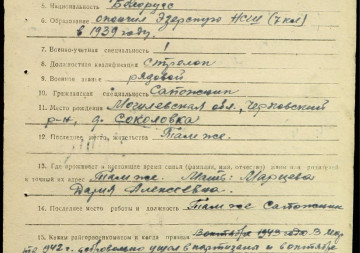 5. Национальность Белорус
6. Образование окончил Эдерскую НСШ (7 кл)
в 1939 году.
7. Военно-учетная специальность
8. Должностная квалификация стрелок
9. Воинское звание рядовой
10. Гражданская специальность Сапожник
11. Место рождения Могилевская обл., Чериковский
р-н, д. Соколовка
12. Последнее место жительства Там же.
13. Где проживает в настоящее время семья (фамилия, имя, отчество) жены или родителей
и точный их адрес Там же. Мать: Марцева
Дария Алексеевна.
14. Последнее место работы и должность Там же Сапожник
15. Каким райвоенкоматом и когда призван 3 мар
та 1942 г. добровольно ушел в партизаны и в октябре